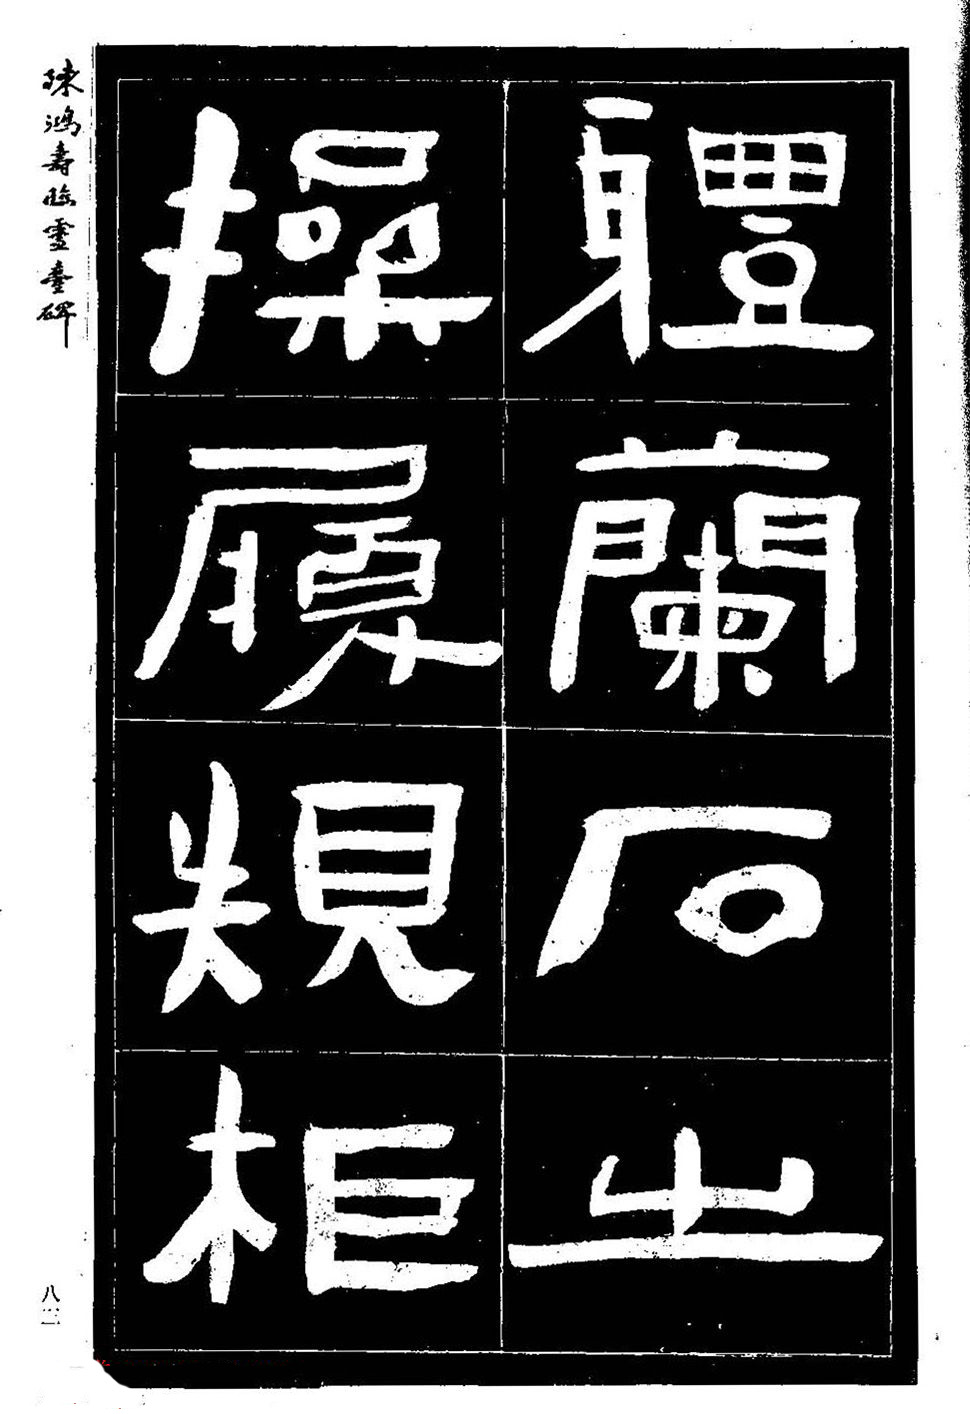 軆蘭石之
操履規柜
陳鴻壽臨靈臺碑
八三